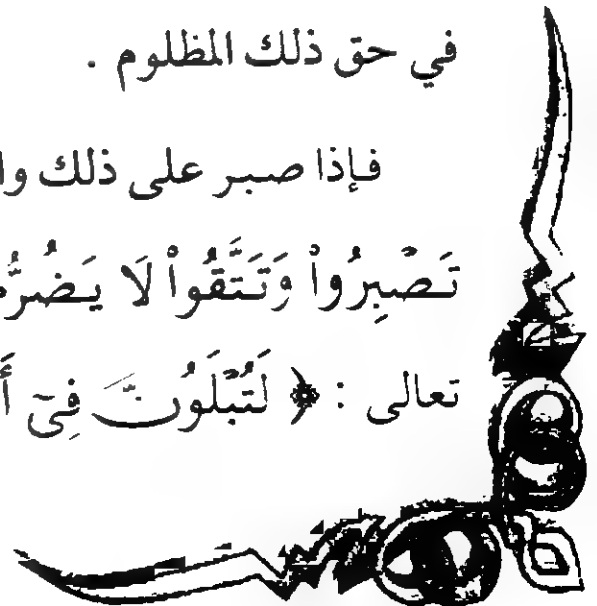 في حق ذلك المظلوم .
فإذا صبر على ذلك
تَصْبِرُوا۟ وَتَتَّقُوا۟ لَا
تعالى : ﴿ لَتُبْلَوُنَّ فِىٓ